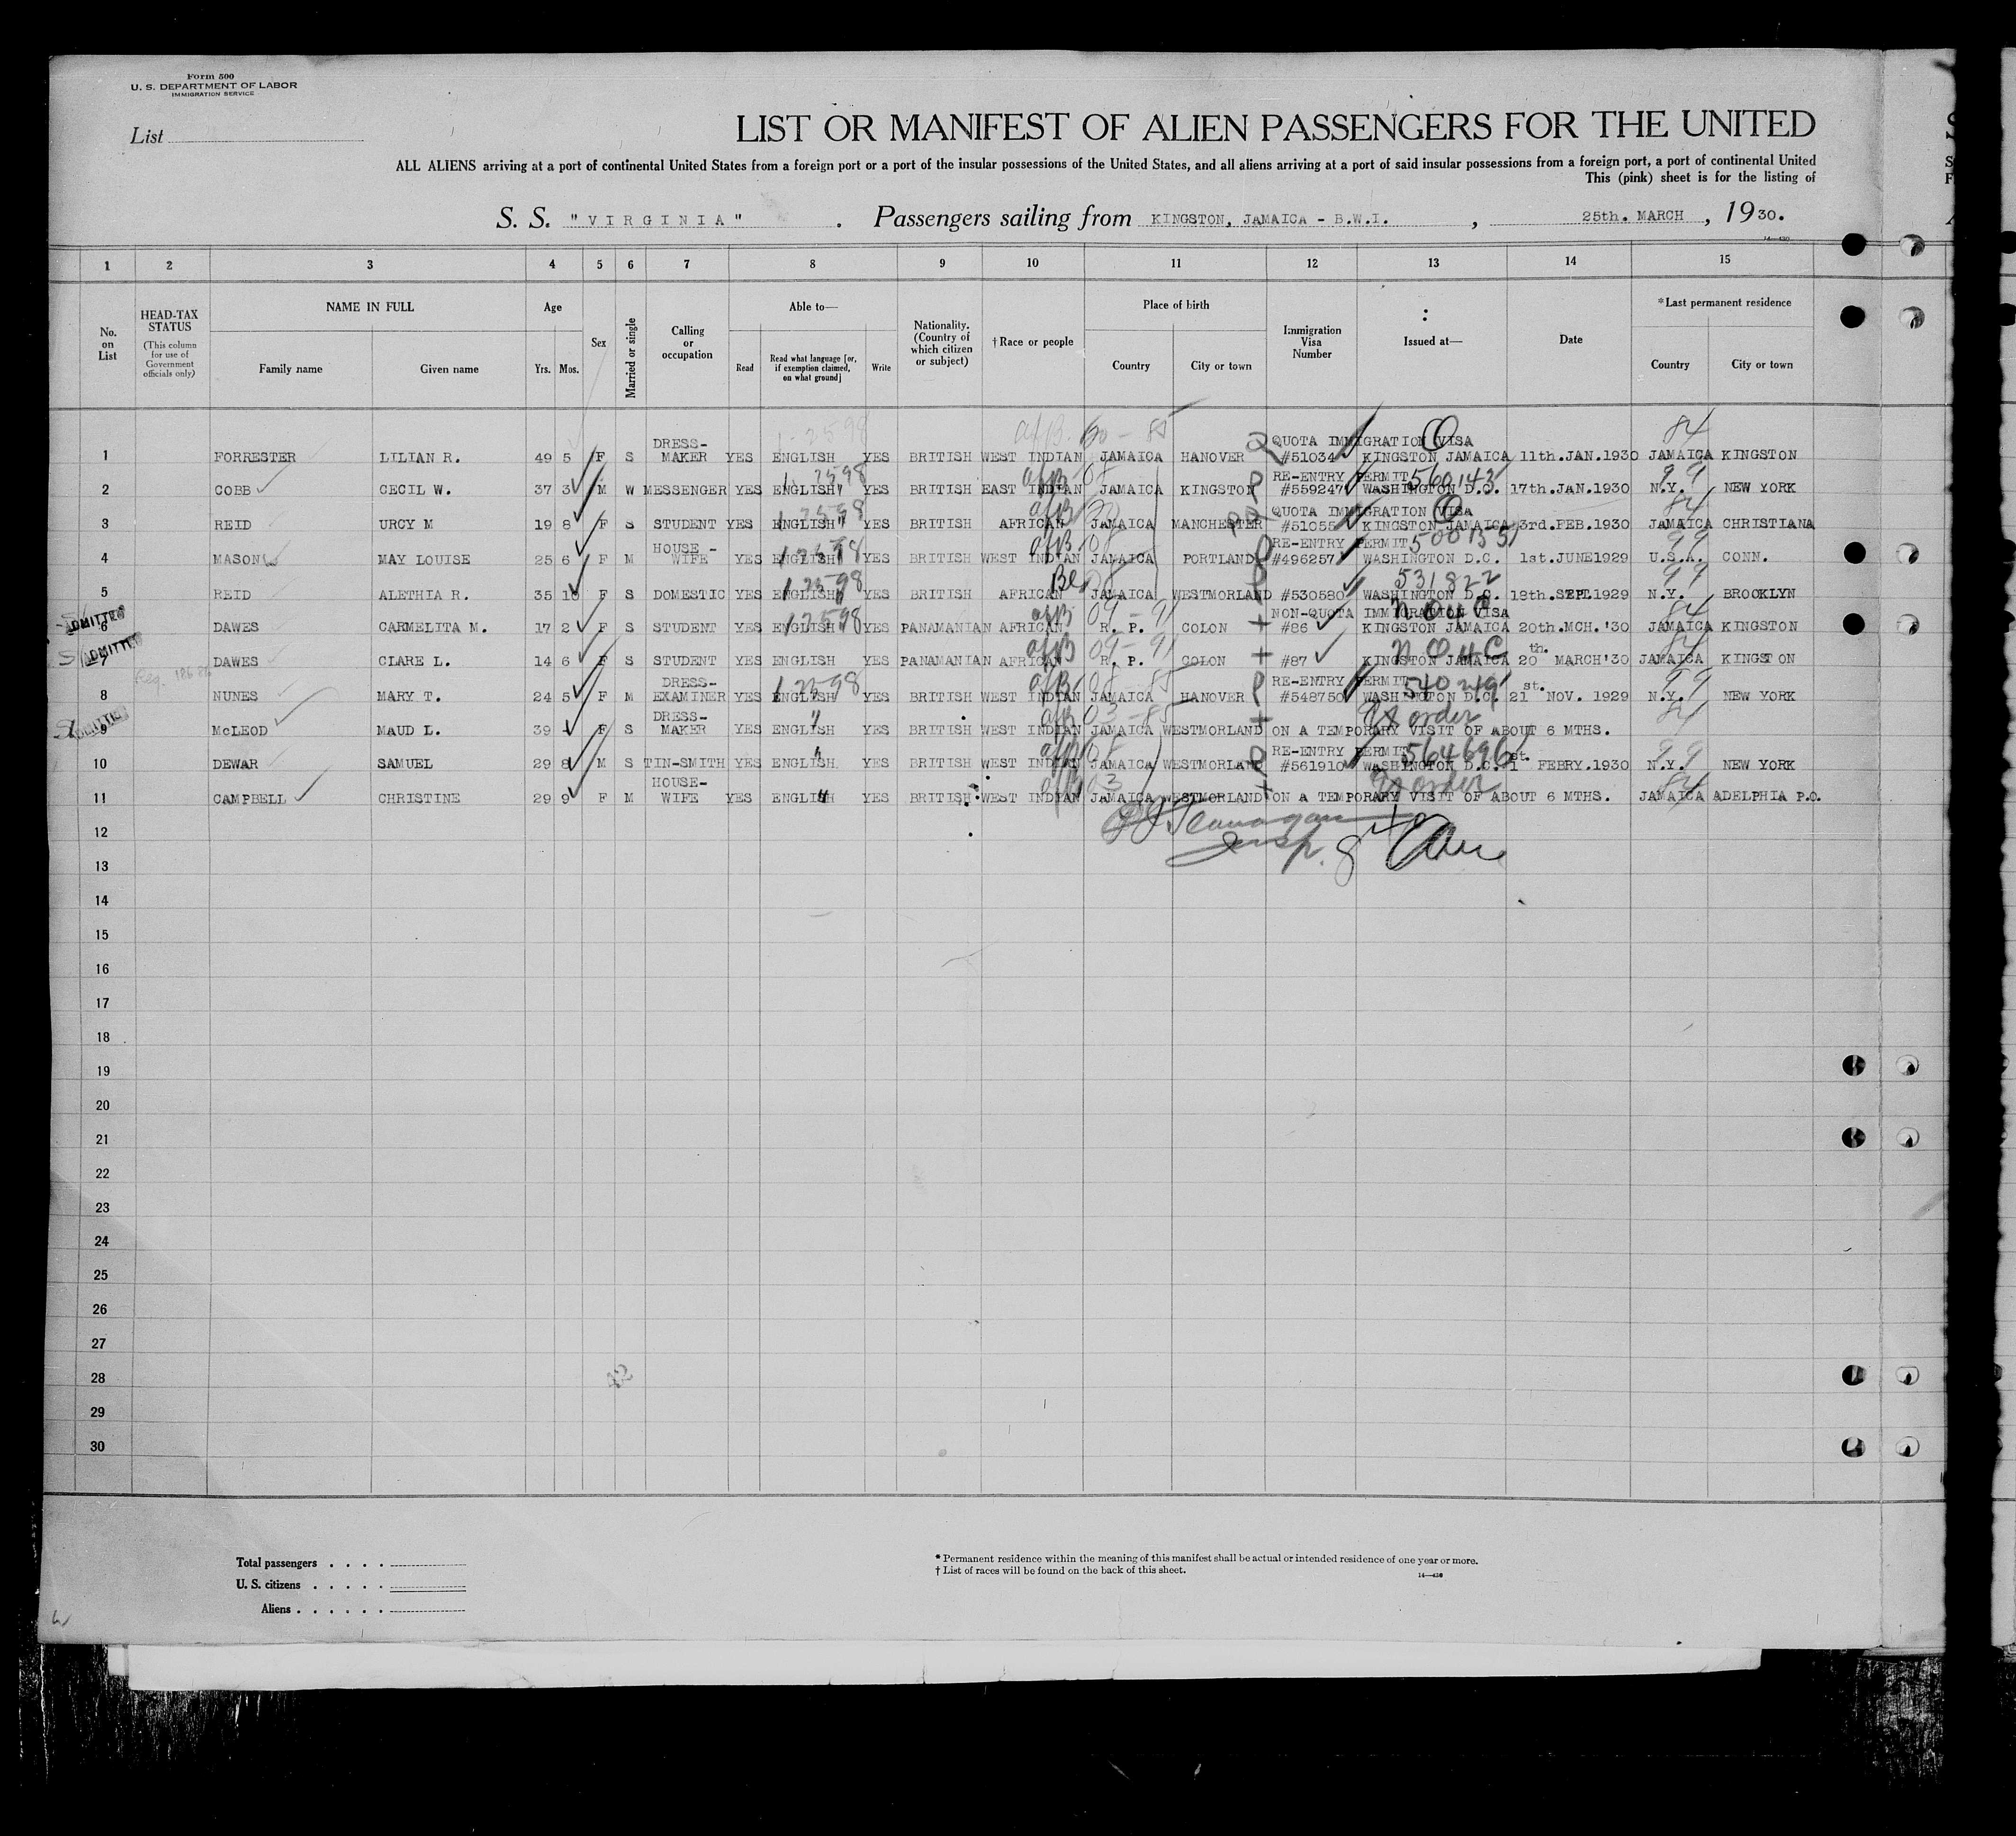 Form 500
U. S. DEPARTMENT OF LABOR
IMMIGRATION SERVICE
List
LIST OR MANIFEST OF ALIEN PASSENGERS FOR THE UNITED
ALL ALIENS arriving at a port of continental United States from a foreign port or a port of the insular possessions of the United States, and all aliens arriving at a port of said insular possessions from a foreign port, a port of continental United
This (pink) sheet is for the listing of
S. S. "VIRGINIA" . Passengers sailing from KINGSTON, JAMAICA - B.W.I. , 25th. MARCH , 1930.
1 2 3 4 5 6 7 8 9 10 11 12 13 14 15
No. on List
HEAD-TAX STATUS
(This column for use of Government officials only)
NAME IN FULL
Family name Given name
Age
Yrs. Mos.
Sex
Married or single
Calling or occupation
Able to—
Read Read what language [or, if exemption claimed, on what ground] Write
Nationality. (Country of which citizen or subject)
† Race or people
Place of birth
Country City or town
Immigration Visa Number
Issued at—
Date
* Last permanent residence
Country City or town
DRESS- QUOTA IMMIGRATION VISA
1 FORRESTER LILIAN R. 49 5 F S MAKER YES ENGLISH YES BRITISH WEST INDIAN JAMAICA HANOVER #51034 KINGSTON JAMAICA 11th.JAN.1930 JAMAICA KINGSTON
RE-ENTRY PERMIT 560143
2 COBB CECIL W. 37 3 M W MESSENGER YES ENGLISH YES BRITISH EAST INDIAN JAMAICA KINGSTON #559247 WASHINGTON D.C. 17th.JAN.1930 N.Y. NEW YORK
QUOTA IMMIGRATION VISA
3 REID URCY M 19 8 F S STUDENT YES ENGLISH YES BRITISH AFRICAN JAMAICA MANCHESTER #51055 KINGSTON JAMAICA 3rd.FEB.1930 JAMAICA CHRISTIANA
HOUSE- RE-ENTRY PERMIT
4 MASON MAY LOUISE 25 6 F M WIFE YES ENGLISH YES BRITISH WEST INDIAN JAMAICA PORTLAND #496257 WASHINGTON D.C. 1st.JUNE1929 U.S.A. CONN.
531822
5 REID ALETHIA R. 35 10 F S DOMESTIC YES ENGLISH YES BRITISH AFRICAN JAMAICA WESTMORLAND #530580 WASHINGTON D.C. 18th.SEPT.1929 N.Y. BROOKLYN
ADMITTED NON-QUOTA IMMIGRATION VISA
6 DAWES CARMELITA M. 17 2 F S STUDENT YES ENGLISH YES PANAMANIAN AFRICAN R. P. COLON #86 KINGSTON JAMAICA 20th.MCH.'30 JAMAICA KINGSTON
ADMITTED
7 DAWES CLARE L. 14 6 F S STUDENT YES ENGLISH YES PANAMANIAN AFRICAN R. P. COLON #87 KINGSTON JAMAICA 20th. MARCH'30 JAMAICA KINGSTON
DRESS- RE-ENTRY PERMIT
8 NUNES MARY T. 24 5 F M EXAMINER YES ENGLISH YES BRITISH WEST INDIAN JAMAICA HANOVER #548750 WASHINGTON D.C. 21st. NOV. 1929 N.Y. NEW YORK
DRESS-
9 McLEOD MAUD L. 39 - F S MAKER YES ENGLISH YES BRITISH WEST INDIAN JAMAICA WESTMORLAND ON A TEMPORARY VISIT OF ABOUT 6 MTHS.
RE-ENTRY PERMIT 564696
10 DEWAR SAMUEL 29 8 M S TIN-SMITH YES ENGLISH YES BRITISH WEST INDIAN JAMAICA WESTMORLAND #561910 WASHINGTON D.C. 1st. FEBRY.1930 N.Y. NEW YORK
HOUSE-
11 CAMPBELL CHRISTINE 29 9 F M WIFE YES ENGLISH YES BRITISH WEST INDIAN JAMAICA WESTMORLAND ON A TEMPORARY VISIT OF ABOUT 6 MTHS. JAMAICA ADELPHIA P.O.
12
13
14
15
16
17
18
19
20
21
22
23
24
25
26
27
28
29
30
Total passengers . . . .
U. S. citizens . . . . .
Aliens . . . . . .
* Permanent residence within the meaning of this manifest shall be actual or intended residence of one year or more.
† List of races will be found on the back of this sheet.
14—430